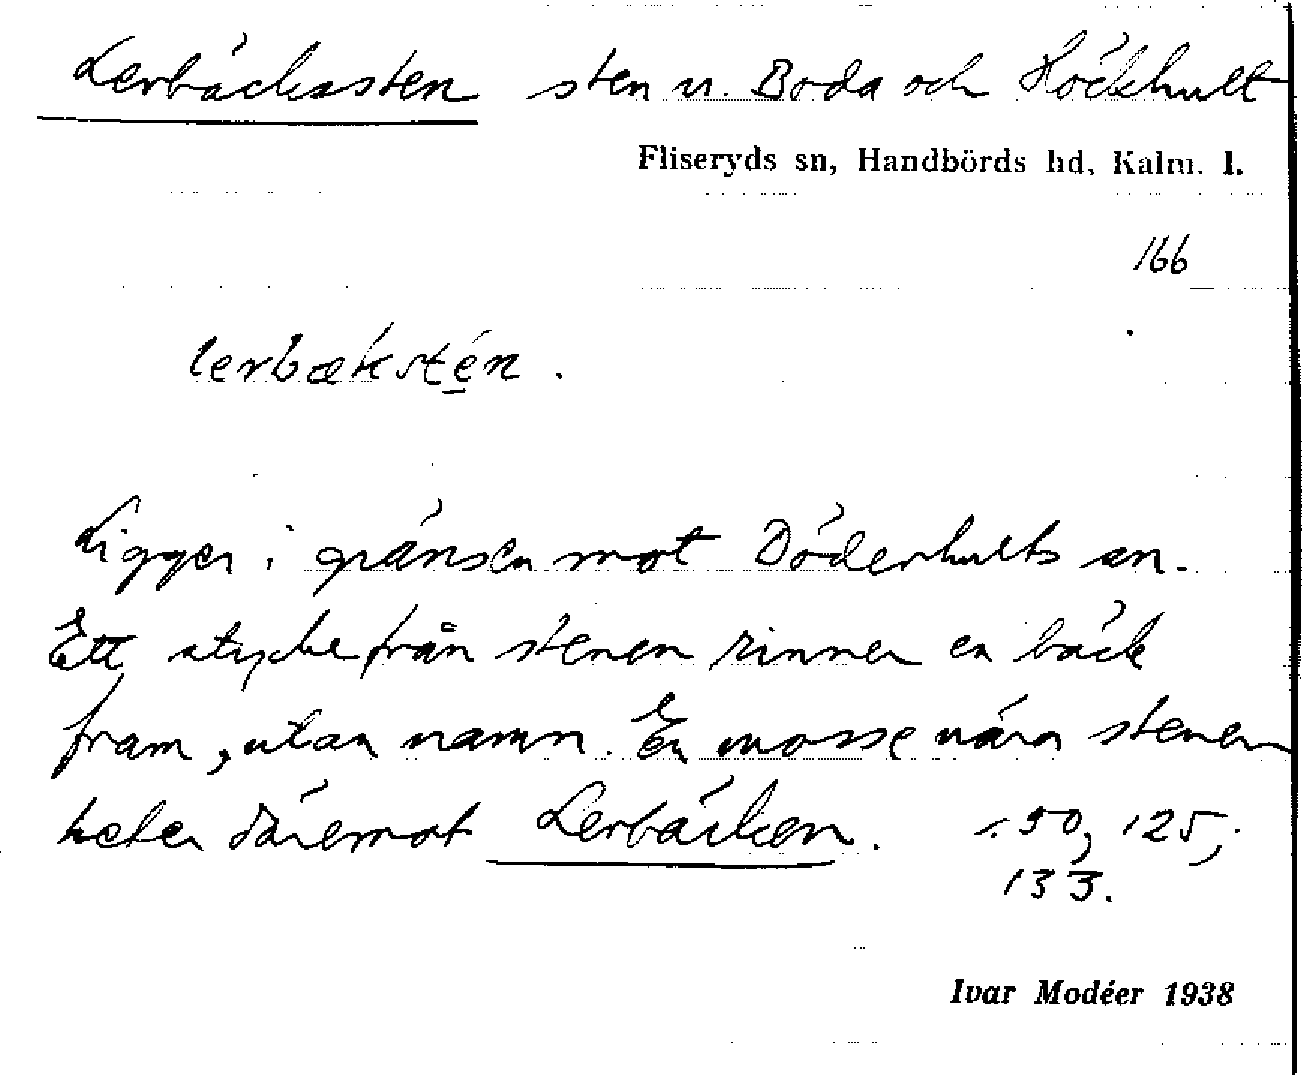 Lerbäckssten sten u. Boda och Höckhult
Fliseryds sn, Handbörds hd, Kalm. l.
166
lerbækstén.
Ligger i gränsen mot Döderhults sn.
Ett stycke från stenen rinner en bäck
fram, utan namn. En mosse nära stenen
heter däremot Lerbäcken. s. 50, 125,
133.
Ivar Modéer 1938